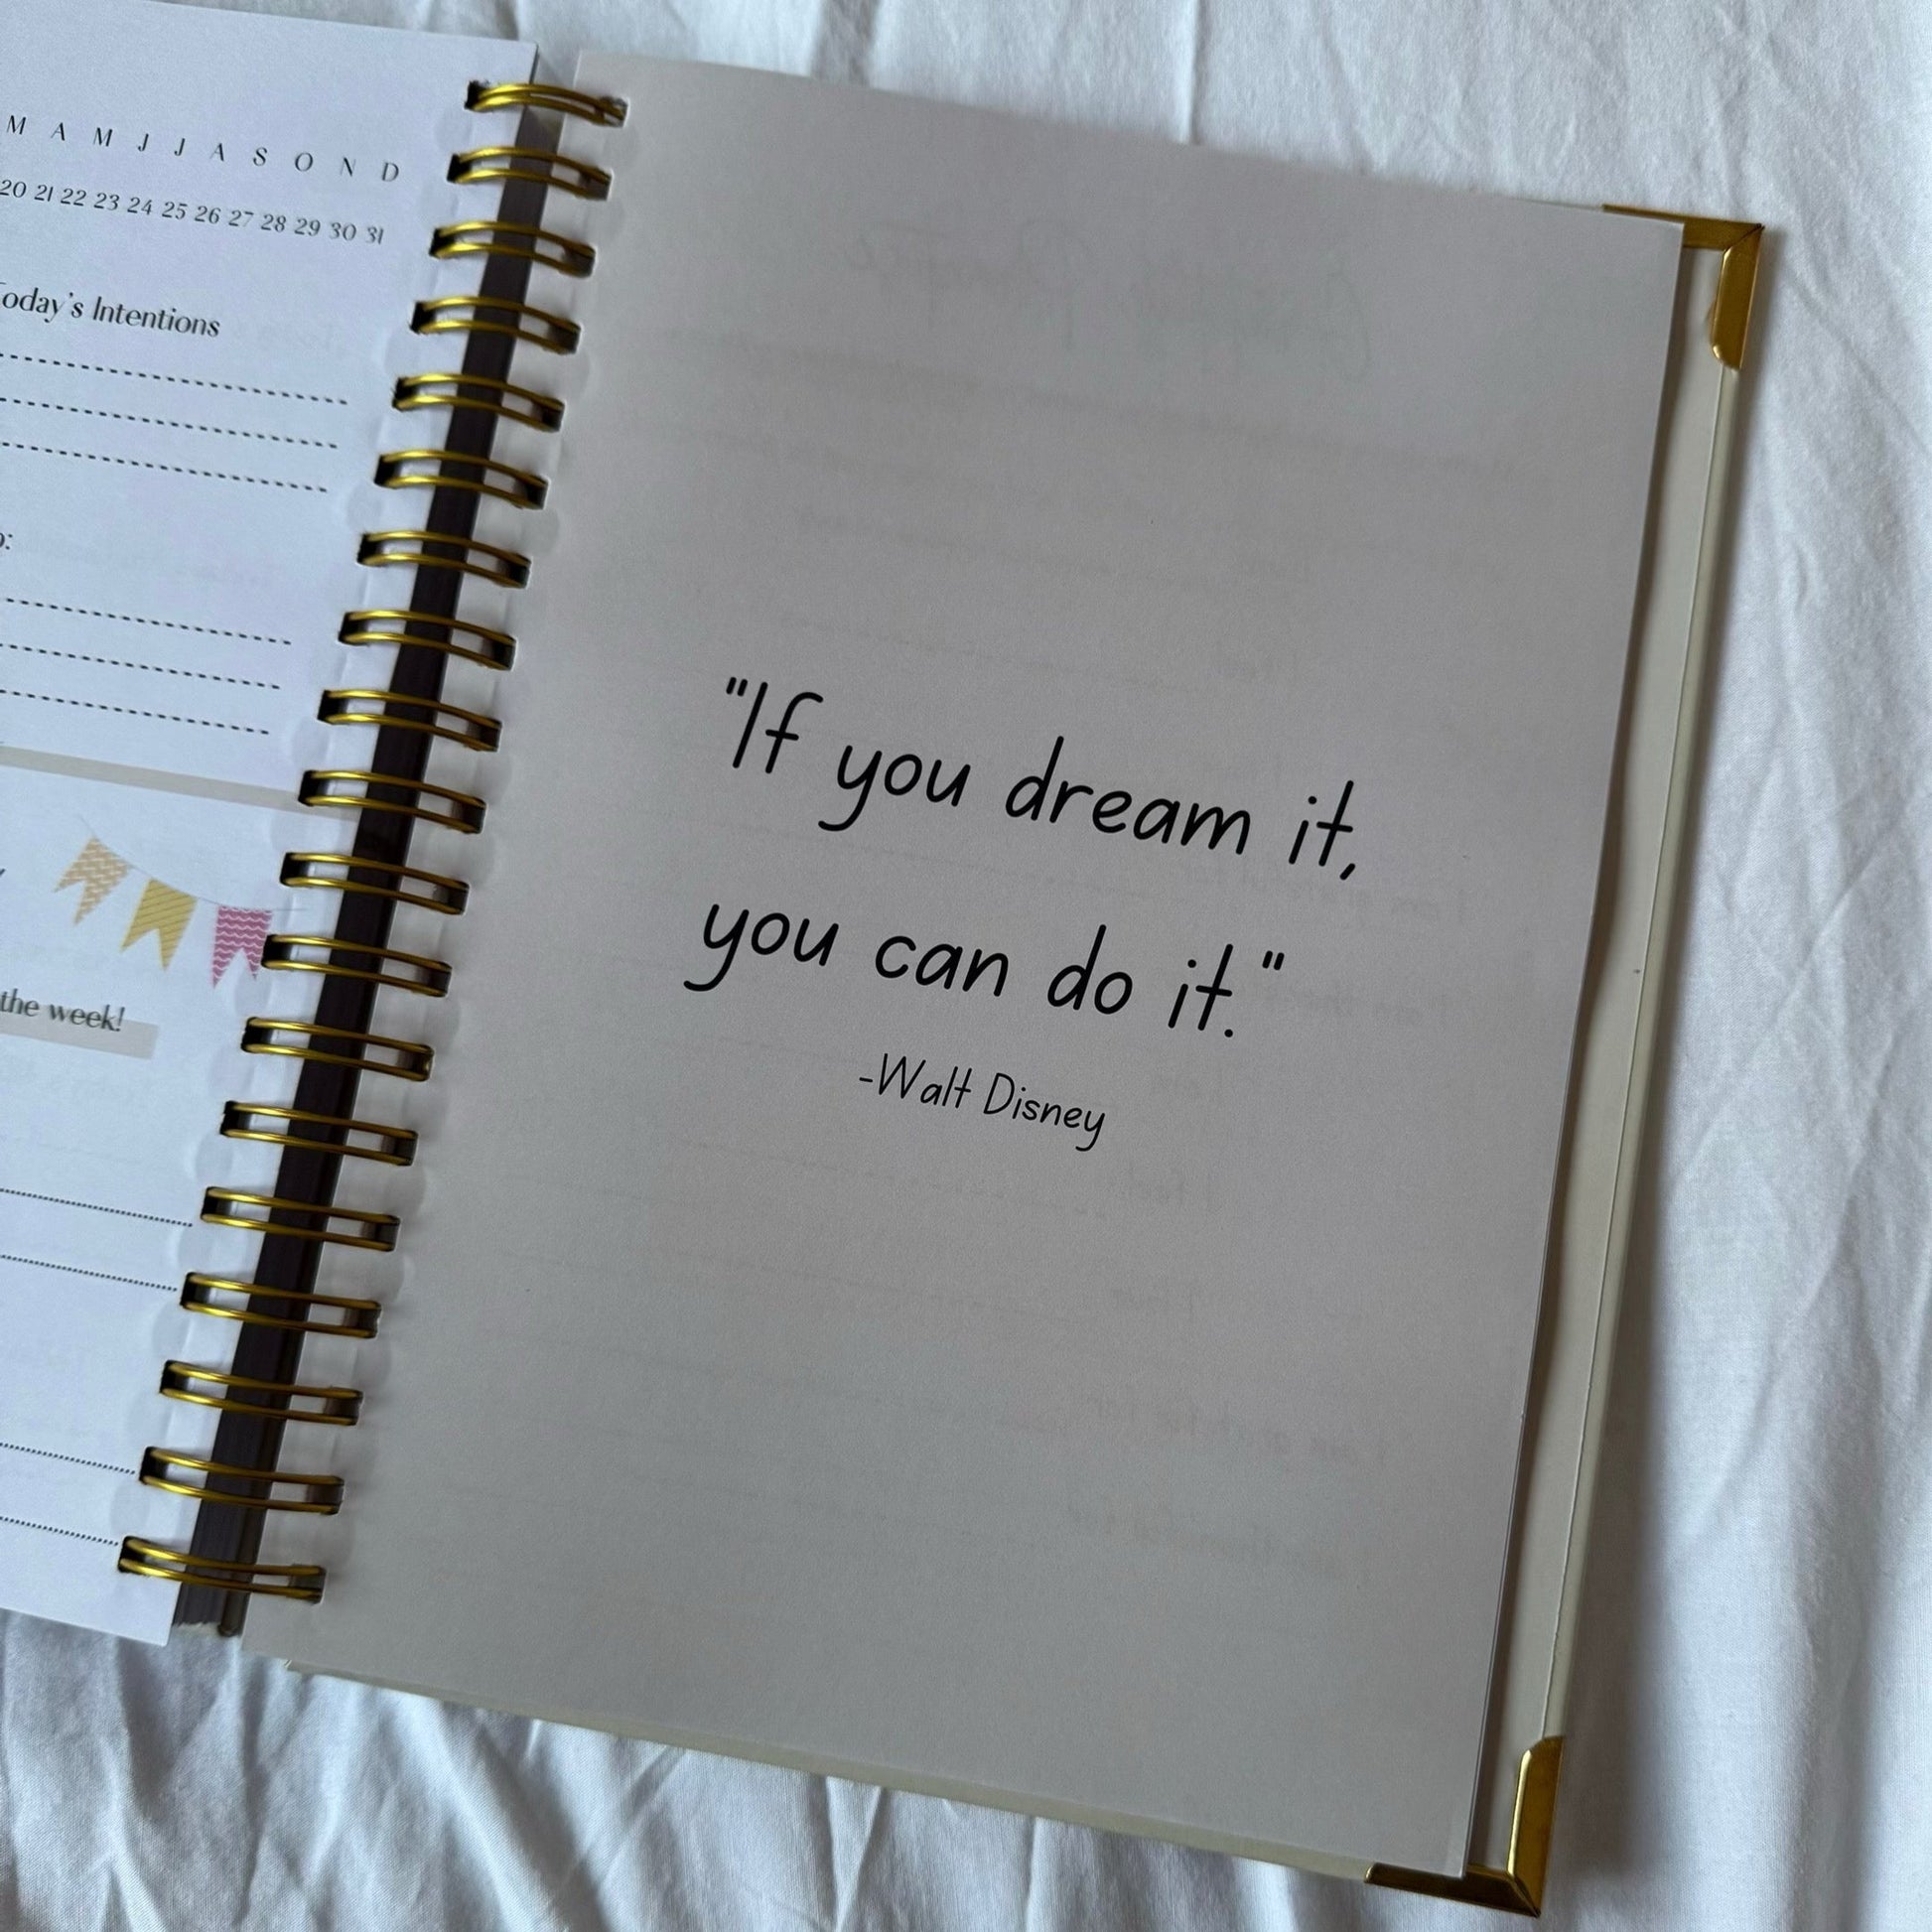 M A M J J A S O N D
20 21 22 23 24 25 26 27 28 29 30 31
oday's Intentions
the week!
"If you dream it,
you can do it."
-Walt Disney